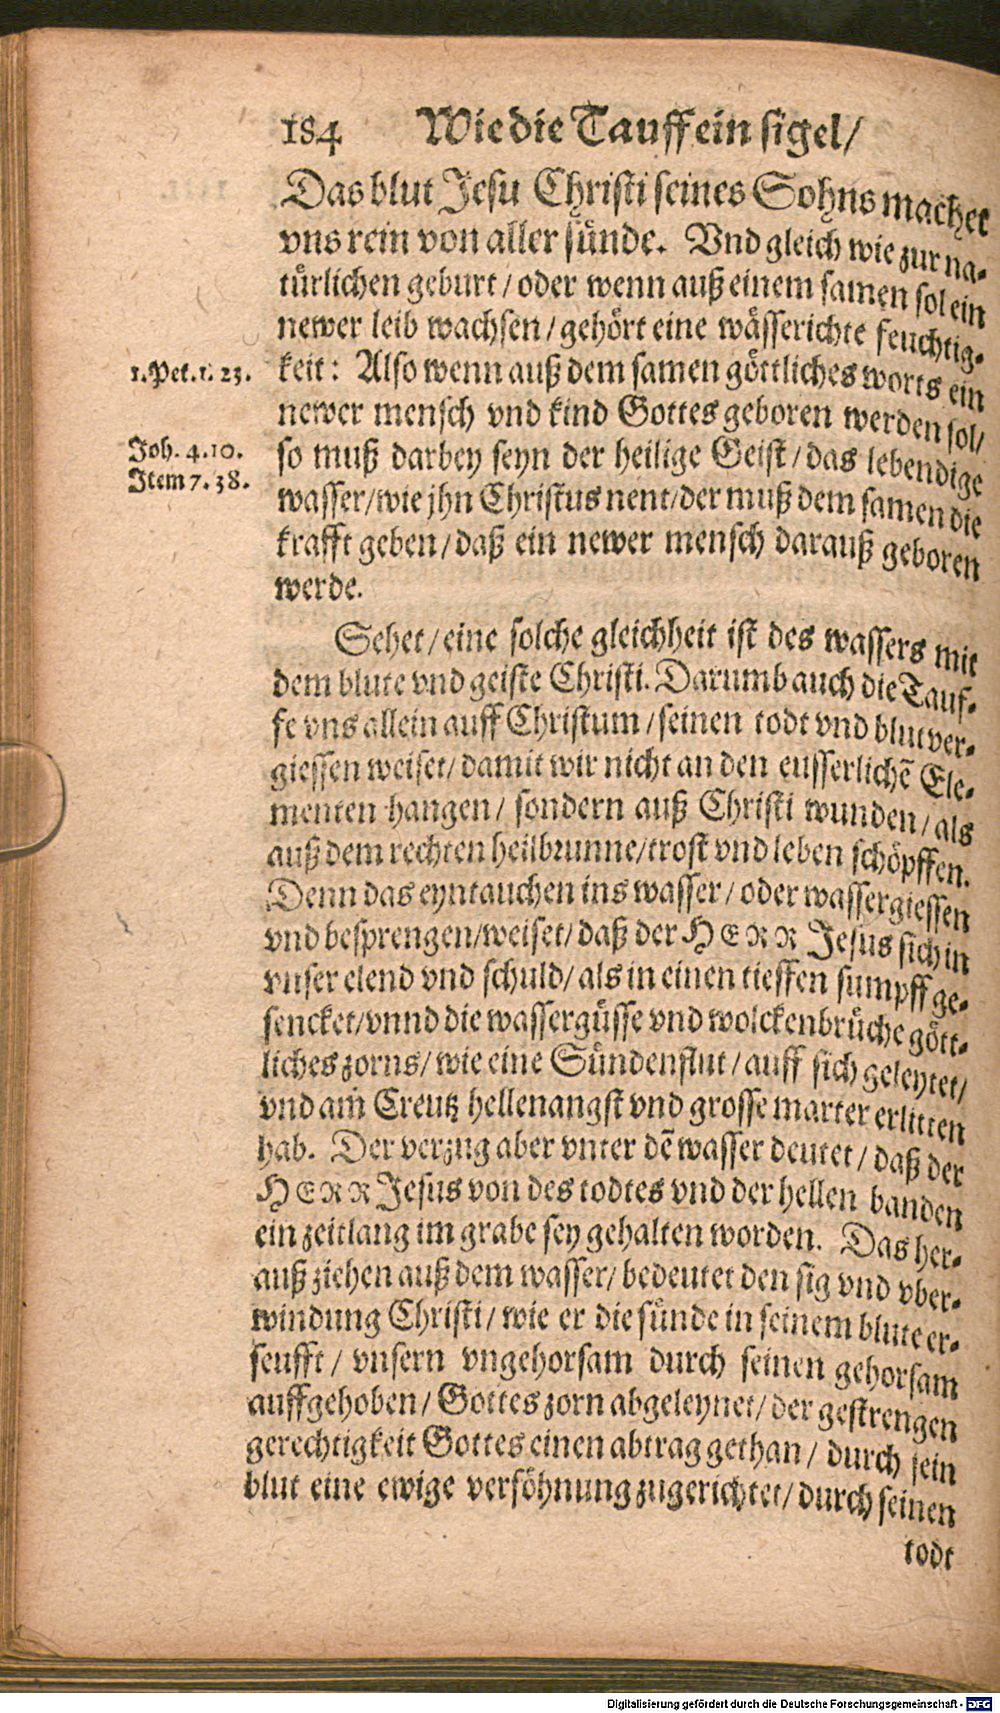 184 Wie die Tauff ein sigel/
Das blut Jesu Christi seines Sohns machet
vns rein von aller sünde. Vnd gleich wie zur na-
türlichen geburt/ oder wenn auß einem samen sol ein
newer leib wachsen/ gehört eine wässerichte feuchtig-
1.Pet.1.23.
keit: Also wenn auß dem samen göttliches worts ein
newer mensch vnd kind Gottes geboren werden sol/
Joh. 4.10.
so muß darbey seyn der heilige Geist/ das lebendige
Item 7.38.
wasser/wie jhn Christus nent/der muß dem samen die
krafft geben/ daß ein newer mensch darauß geboren
werde.
Sehet/ eine solche gleichheit ist des wassers mit
dem blute vnd geiste Christi. Darumb auch die Tauf-
fe vns allein auff Christum/ seinen todt vnd blutver-
giessen weiset/ damit wir nicht an den eusserlichẽ Ele-
menten hangen/ sondern auß Christi wunden/ als
auß dem rechten heilbrunne/trost vnd leben schöpffen.
Denn das eyntauchen ins wasser/ oder wassergiessen
vnd besprengen/weiset/ daß der HERR Jesus sich in
vnser elend vnd schuld/ als in einen tieffen sumpff ge-
sencket/vnnd die wassergüsse vnd wolckenbrüche gött-
liches zorns/ wie eine Sündenflut/ auff sich geleytet/
vnd am Creutz hellenangst vnd grosse marter erlitten
hab. Der verzug aber vnter dẽ wasser deutet/ daß der
HERR Jesus von des todtes vnd der hellen banden
ein zeitlang im grabe sey gehalten worden. Das her-
auß ziehen auß dem wasser/ bedeutet den sig vnd vber-
windung Christi/ wie er die sünde in seinem blute er-
seufft/ vnsern vngehorsam durch seinen gehorsam
auffgehoben/ Gottes zorn abgeleynet/ der gestrengen
gerechtigkeit Gottes einen abtrag gethan/ durch sein
blut eine ewige versöhnung zugerichtet/ durch seinen
todt
Digitalisierung gefördert durch die Deutsche Forschungsgemeinschaft - DFG